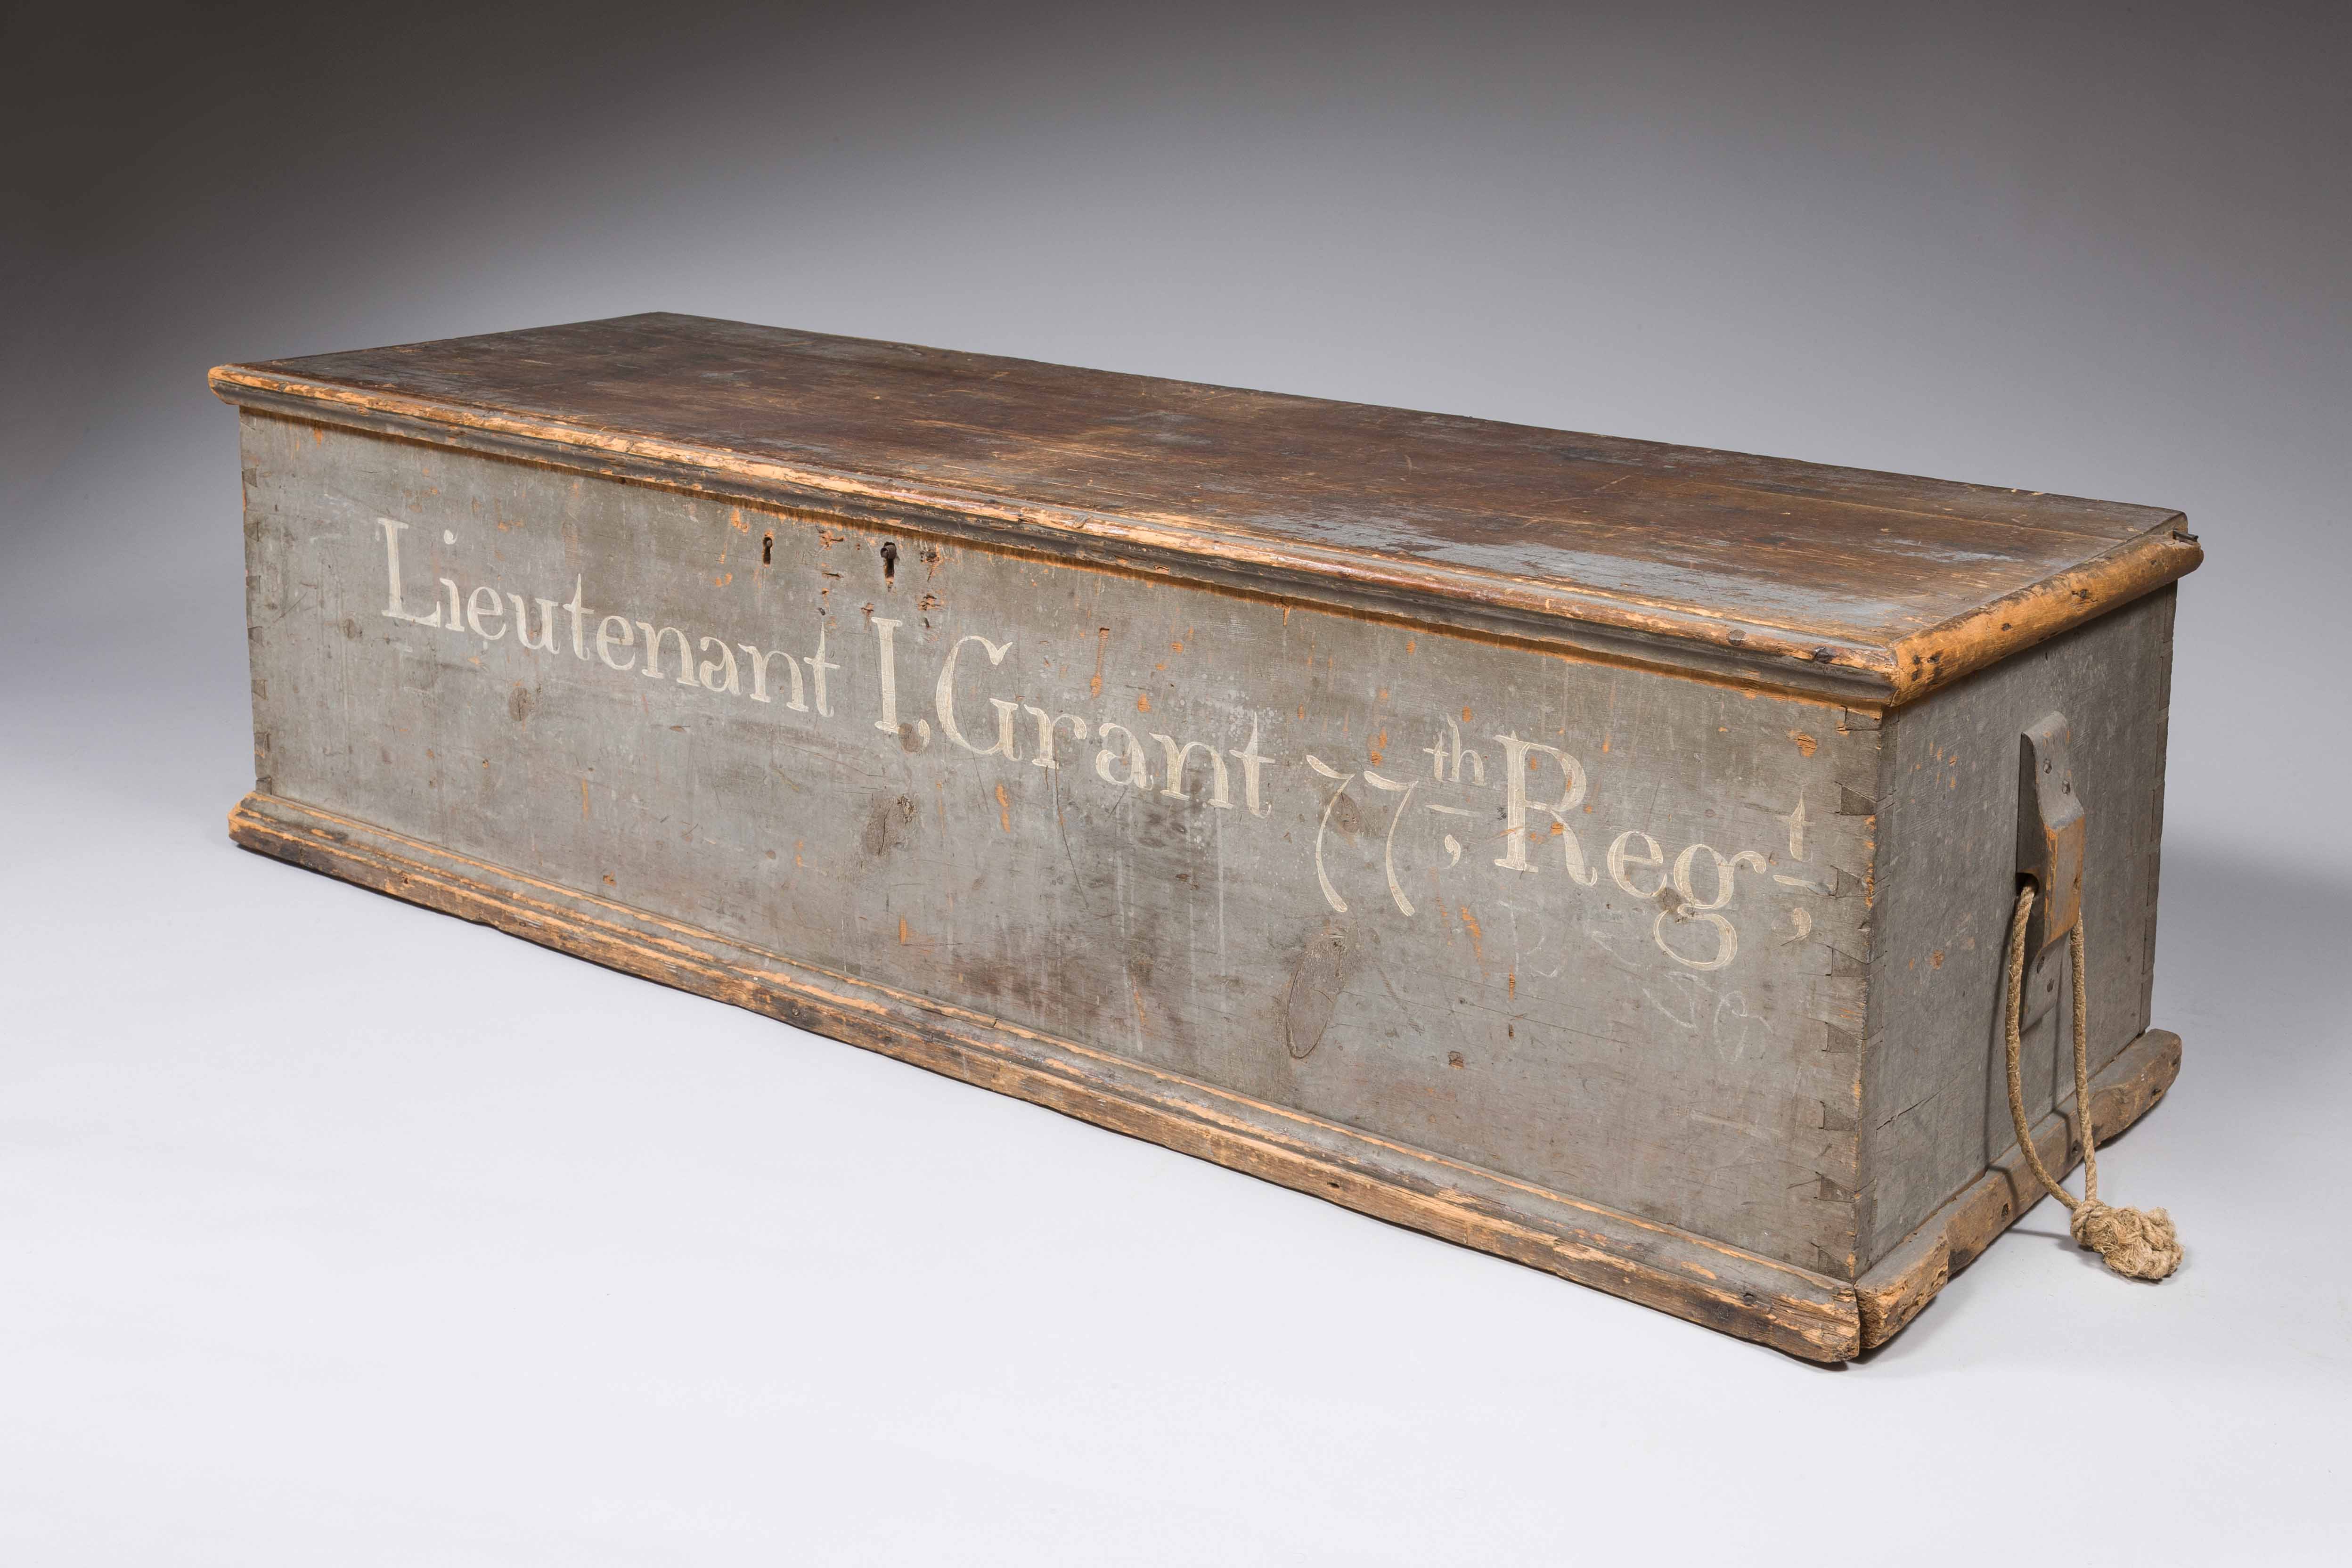 Lieutenant I, Grant 77th, Regt,